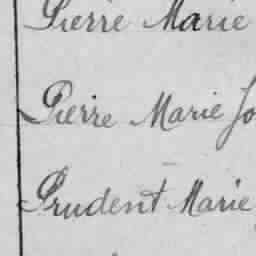 Pierre Marie
Pierre Marie Jo
Prudent Marie